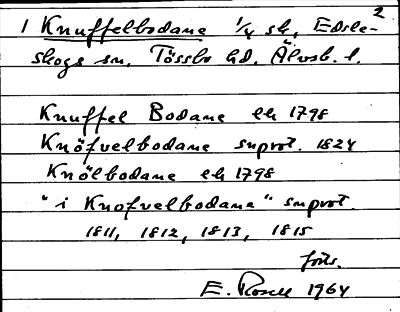 2
1 Knuffelbodane 1/4 sk, Edsle-
skogs sn. Tössbo hd. Älvsb. l.
Knuffel Bodane lk 1798
Knöfvelbodane snprot. 1824
Knölbodane lk 1798
"i Knofvelbodana" snprot.
1811, 1812, 1813, 1815
forts.
E. Rosell 1964